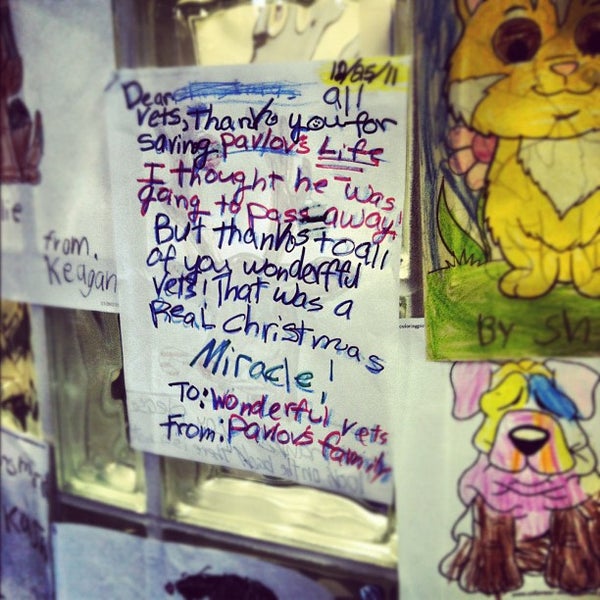 12/25/11
Dear all
vets, Thanks you for
saving Pavlov's Life
I thought he was
gang to pass away!
But thanks to all
of you wonderful
vets! That was a
Real Christmas
Miracle!
To: Wonderful vets
From: Pavlov's family
from.
Keagan
By Sh